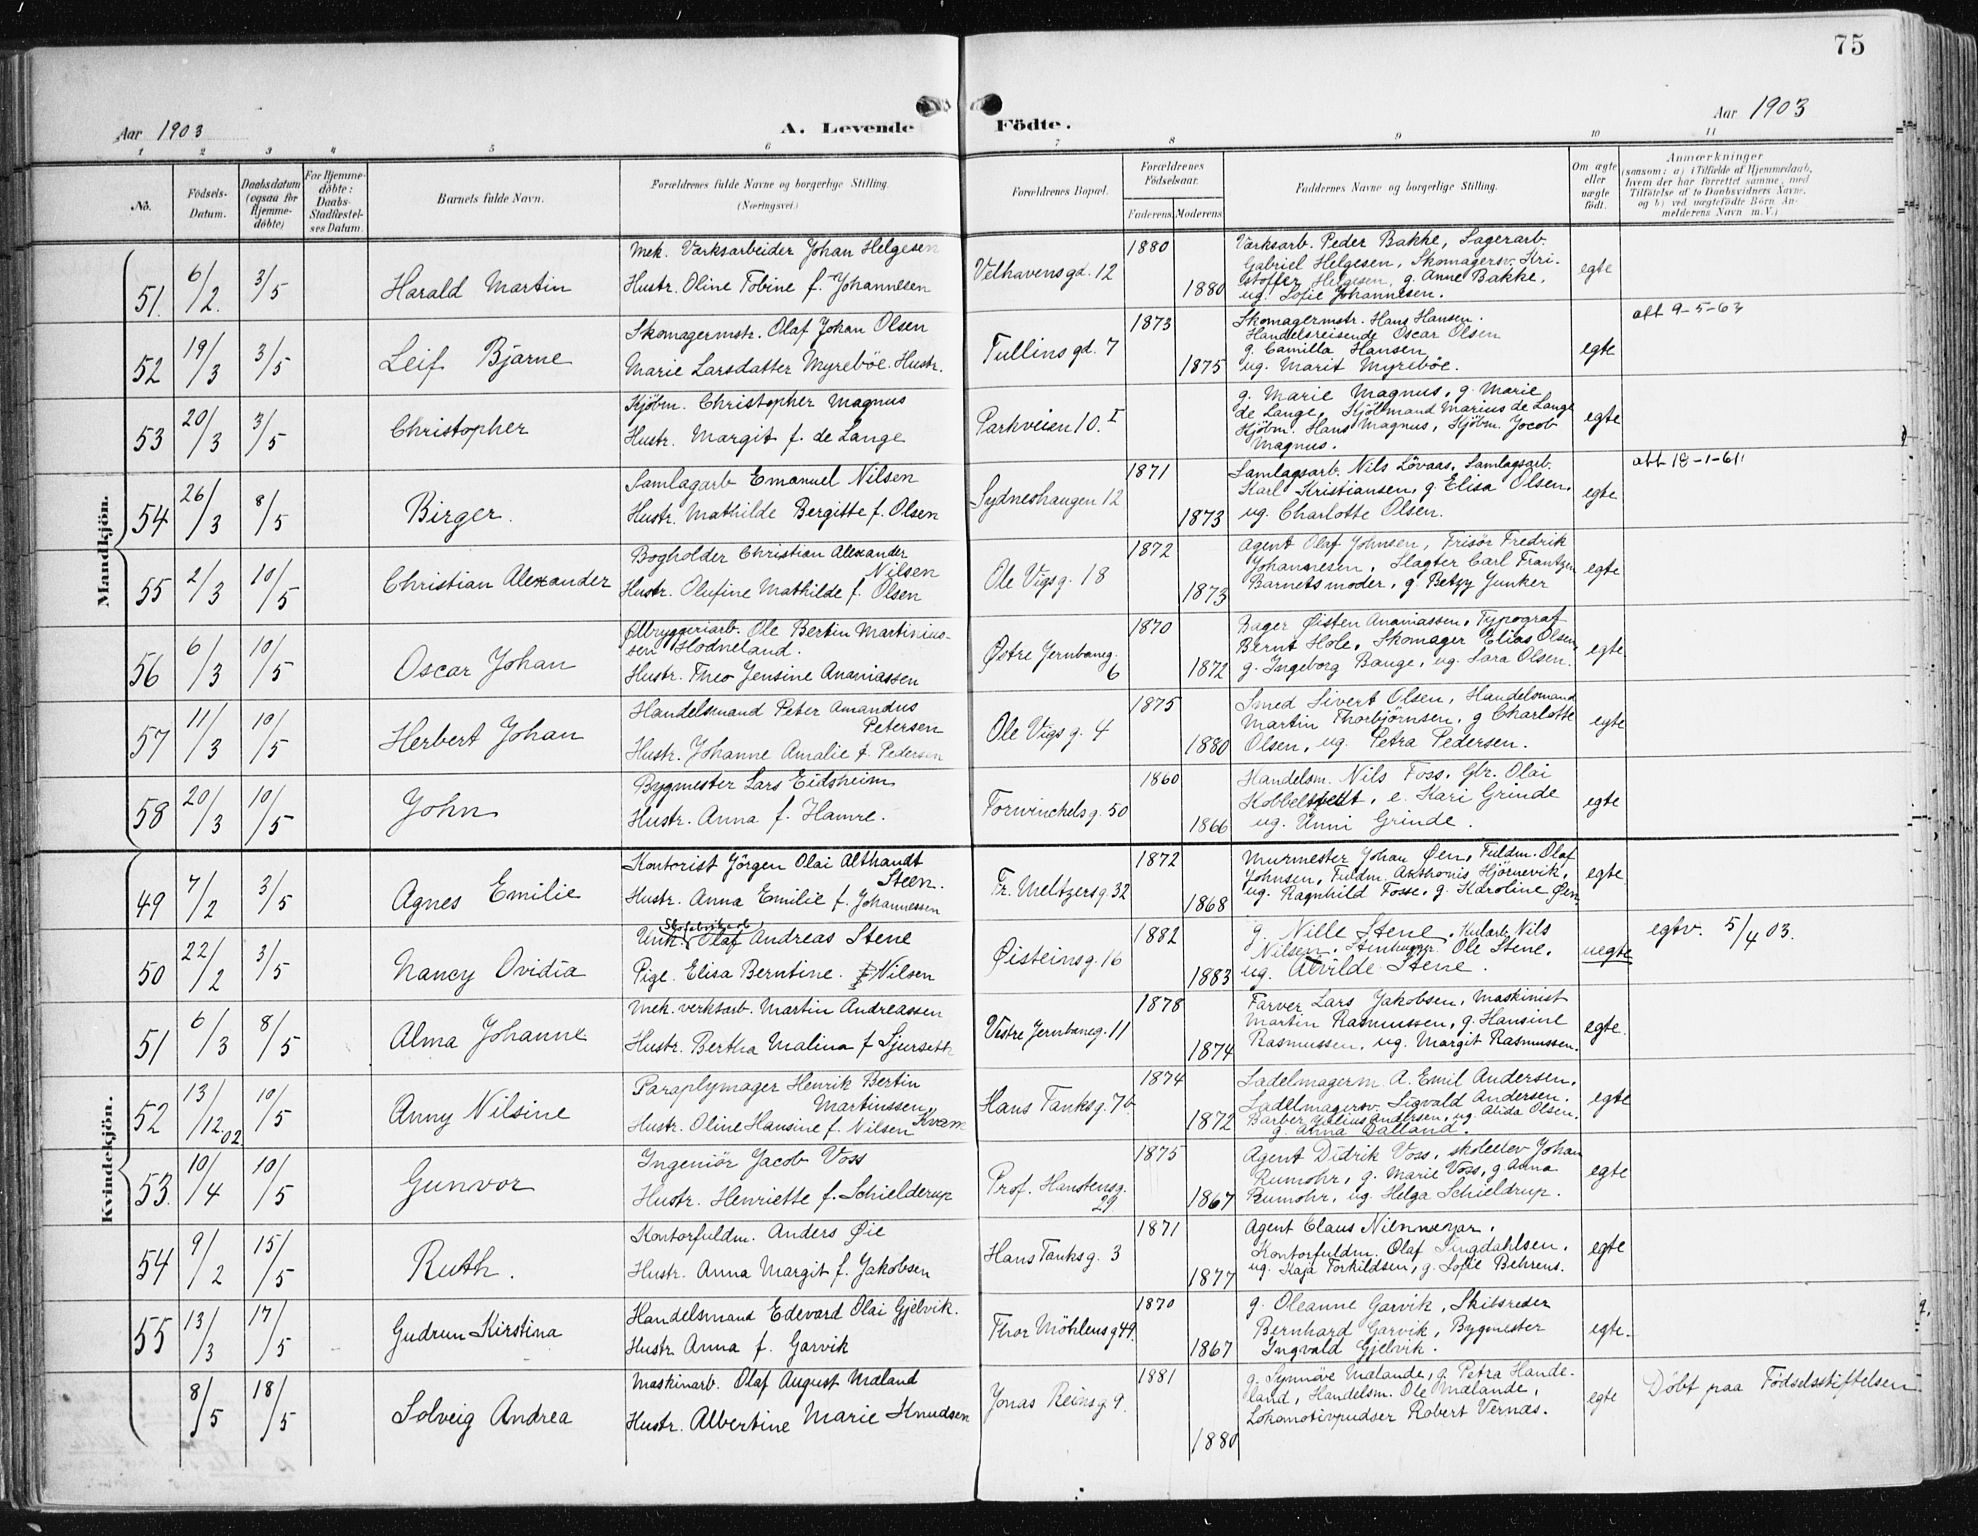 75
Aar 1903
A. Levende Födte.
Aar 1903
1 2 3 4 5 6 7 8 9 10 11
No.
Födsels-Datum.
Daabsdatum (ogsaa for Hjemme-döbte)
For Hjemme-döbte: Daabs-Stadfæstel-ses Datum.
Barnets fulde Navn.
Forældrenes fulde Navne og borgerlige Stilling.
(Næringsvei.)
Forældrenes Bopæl.
Forældrenes Födselsaar.
Faderens Moderens
Faddernes Navne og borgerlige Stilling.
Om ægte eller uægte födt.
Anmærkninger
(saasom: a) i Tilfælde af Hjemmedaab,
hvem der har forrettet samme, med
Tilföielse af to Daabsvidners Navne,
og b) ved uægtefödte Börn An-
melderens Navn m. V.)
Mandkjön.
51. 6/2. 3/5 Harald Martin
Mek. Værksarbeider Johan Helgesen
Hustr. Oline Tobine f. Johannesen
Velhavens gd. 12
1880
1880
Værksarb. Peder Bakke, Lagerarb.
Gabriel Helgesen, Skomagersv. Kri-
stoffer Helgesen, g. Anne Bakke,
ug. Sofie Johannesen.
egte
52 19/3 3/5 Leif Bjarne
Skomagermstr. Olaf Johan Olsen
Marie Larsdatter Myreböe. Hustr.
Tullins gd. 7
1873
1875
Skomagermstr. Hans Hansen.
Handelsreisende Oscar Olsen
g. Camilla Hansen
ug. Marit Myreböe.
egte
att 9-5-63
53 20/3 3/5 Christopher
Kjöbm. Christopher Magnus
Hustr. Margit f. de Lange
Parkveien 10. I
g. Marie Magnus, g. Marie
de Lange, Kjöbmand Marius de Lange
Kjöbm. Hans Magnus, Kjöbm. Jocob
Magnus.
egte
54 26/3 8/5 Birger.
Samlagarb Emanuel Nilsen
Hustr. Mathilde Bergitte f. Olsen
Sydneshaugen 12
1871
1873
Samlagsarb. Nils Lövaas, Samlagsarb.
Karl Kristiansen, g. Elisa Olsen.
ug. Charlotte Olsen.
egte
att 18-1-61
55 2/3 10/5 Christian Alexander
Bogholder Christian Alexander
Nilsen
Hustr. Olufine Mathilde f. Olsen
Ole Vigs g. 18
1872
1873
Agent Olaf Johnsen, Frisör Fredrik
Johannesen, Slagter Carl Frantzen
Barnets moder, g. Betzy Junker
egte
56 6/3 10/5 Oscar Johan
Ølbryggeriarb. Ole Bertin Martinius-
sen Hodneland.
Hustr. Theo Jensine Ananiassen
Østre Jernbaneg.
6
1870
1872
Bager Øisten Ananiassen, Typograf
Bernt Hole, Skomager Elias Olsen,
g. Ingeborg Bauge, ug. Sara Olsen.
egte
57 11/3 10/5 Herbert Johan
Handelsmand Peter Amandus
Petersen
Hustr. Johanne Amalie f. Pedersen
Ole Vigs g. 4
1875
1880
Smed Sivert Olsen, Handelsmand
Martin Thorbjörnsen, g Charlotte
Olsen, ug. Petra Pedersen.
egte
58 20/3 10/5 John
Bygmester Lars Eidsheim
Hustr. Anna f. Hamre.
g. 50
1860
1866
Handelsm. Nils Foss, Gbr. Olai
e. Kari Grinde
ug. Unni Grinde.
egte
Kvindekjön.
49 7/2 3/5 Agnes Emilie
Kontorist Jörgen Olai Althandt
Steen.
Hustr. Anna Emilie f. Johannessen
Fr. Meltzersg. 32
1872
1868
Murmester Johan Øen, Fuldm. Olaf
Johnsen, Fuldm. Anthonis Hjörnevik,
ug. Ragnhild Fosse, g. Karoline Øen
egte
50 22/2 3/5 Nancy Ovidia
Skofabrikarb
Unk. Olaf Andreas Stene
Pige. Elisa Berntine. f Nilsen
Øisteinsg. 16
1882
1883
g. Nille Stene, Kularb. Nils
Nilsen, Ole Stene,
ug. Alvilde Stene.
uegte
egtv. 5/4 03.
51 6/3 8/5 Alma Johanne
Mek. verkstarb. Martin Andreassen
Hustr. Bertha Malina f Sjursetk
Vestre Jernbaneg. 11
1878
1874
Farver Lars Jakobsen, Maskinist
Martin Rasmussen, g. Hansine
Rasmussen, ug. Margit Rasmussen.
egte.
52 13/12 02 10/5 Anny Nilsine
Paraplymager Henrik Bertin
Martinssen Kvam
Hustr. Oline Hansine f. Nilsen
Hans Tanks g. 7b
1874
1872
Sadelmagerm. A. Emil Andersen,
Sadelmagersv. Sigvald Andersen,
Barber Julius Andersen, ug. Alida Olsen,
g. Anna Dalland.
egte
53. 10/4 10/5 Gunvor
Ingeniör Jacob Voss
Hustr. Henriette f. Schielderup
Prof. Hansteensg.
29
1875
1867
Agent Didrik Voss, skoleelev Johan
Rumohr, g. Marie Voss, g Anna
Rumohr, ug Helga Schieldrup.
egte
54 9/2 15/5 Ruth.
Kontorfuldm. Anders Øie
Hustr. Anna Margit f. Jakobsen
Hans Tanksg. 3
1871
1877
Agent Claus Nienmeyar,
Kontorfuldm. Olaf Tingdahlsen,
ug. Kaja Torkildsen, g. Sofie Behrens.
egte
55 13/3 17/5 Gudrun Kirstina
Handelsmand Edevard Olai Gjelvik.
Hustr Anna f. Garvik
Thor Möhlens g 49.
1870
1867
g. Oleanne Garvik, Skibsreder
Bernhard Garvik, Bygmester
Ingvald Gjelvik.
egte.
8/5 18/5 Solveig Andrea
Maskinarb. Olaf August Mæland
Hustr. Albertine Marie Knudsen
Jonas Reins g 9.
1881
1880
g. Synnöve Mælande, g. Petra Hande-
land, Handelsm. Ole Mælande,
Lokomotivpudser Robert Vernæs.
egte
Döbt paa Födselsstiftelsen